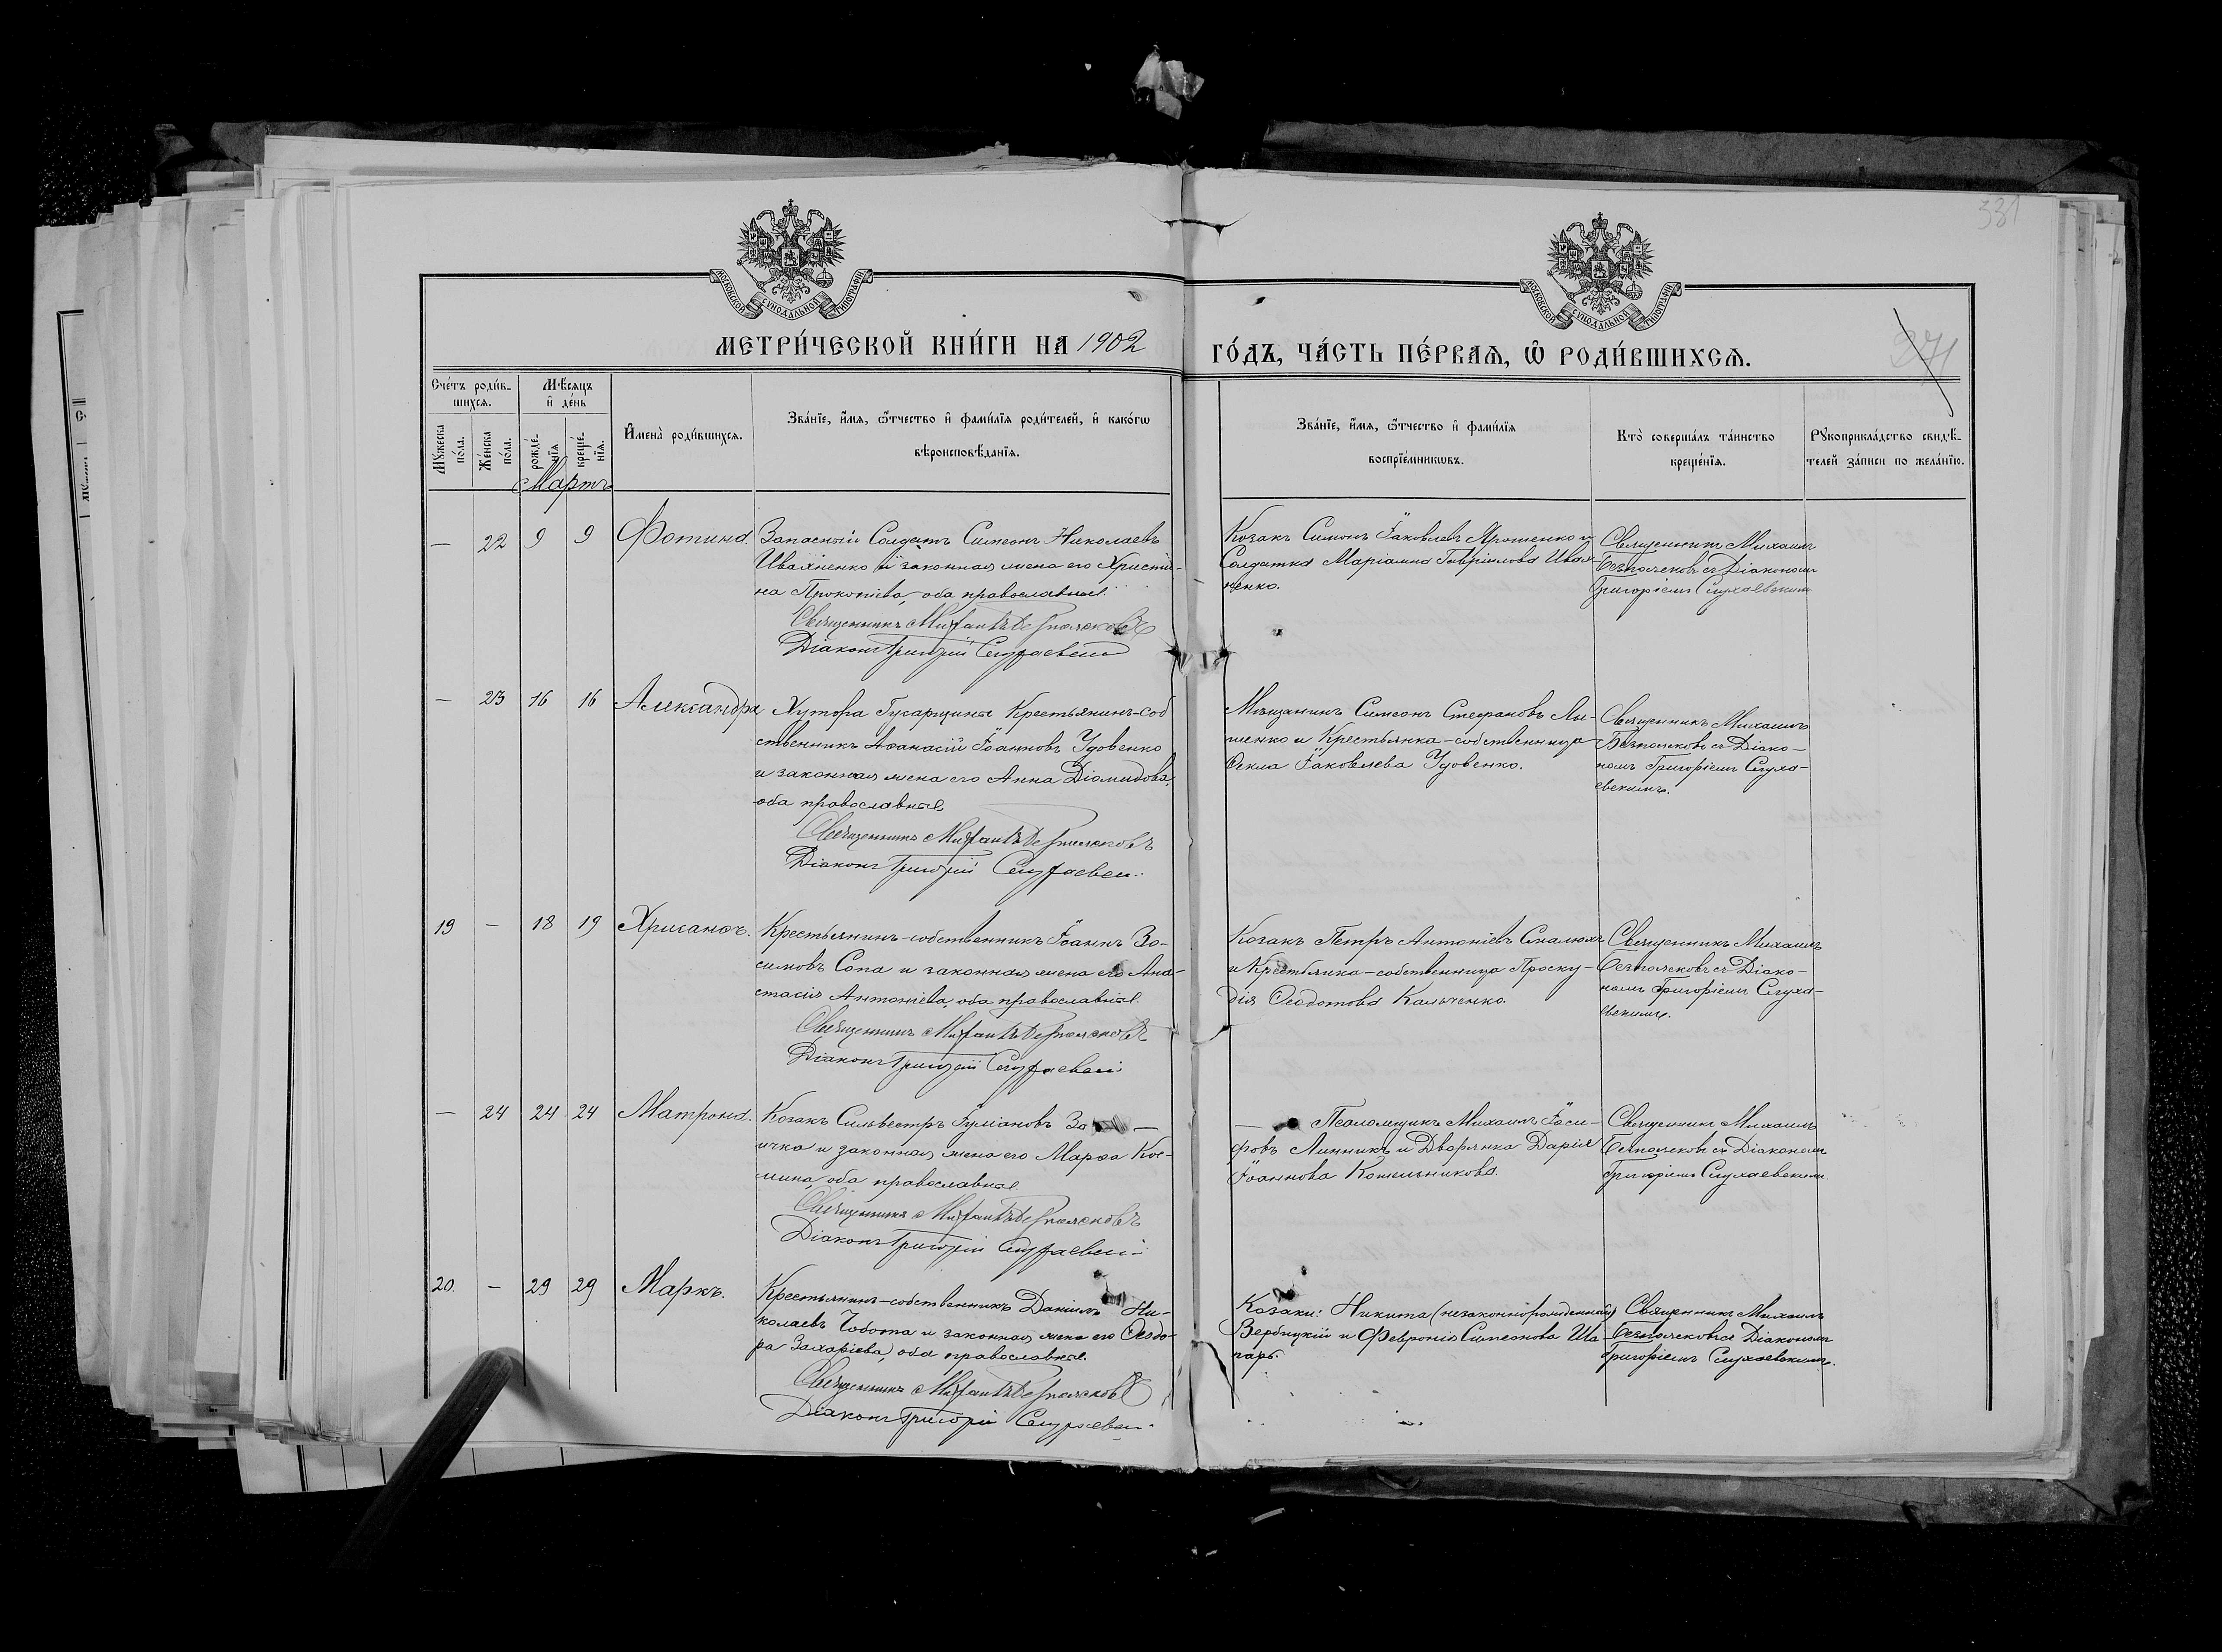 331
МОСКОВСКОЙ СѴНОДАЛЬНОЙ ТИПОГРАФІИ
МОСКОВСКОЙ СѴНОДАЛЬНОЙ ТИПОГРАФІИ
МЕТРИ́ЧЕСКОЙ КНИ́ГИ НА 1902
ГО́ДЪ, ЧА́СТЬ ПЕ́РВАѦ, Ѡ҃ РОДИ́ВШИХСѦ.
271
Сче́тъ роди́в-
шихсѧ.
Мꙋ́жеска
по́ла.
Же́нска
по́ла.
Мѣ́сѧцъ
и҆ де́нь
рожде́-
нїѧ
креще́-
нїѧ.
Мартъ
И҆мена̀ роди́вшихсѧ.
Зва́нїе, и҆́мѧ, ѻ҆́тчество и҆ фами́лїѧ роди́телей, и҆ како́гѡ
вѣроисповѣ́данїѧ.
Зва́нїе, и҆́мѧ, ѻ҆́тчество и҆ фами́лїѧ
воспрїе́мникѡвъ.
Кто̀ соверша́лъ та́инство
креще́нїѧ.
Рꙋкоприкла́дство свидѣ́-
телей за́писи по жела́нїю.
— 22 9 9 Фотина.
Запасный Солдатъ Симеонъ Николаевъ
Ивахненко и законная жена его Христи-
на Прокопіева, оба православные.
Священникъ Михаилъ Безпалсковъ
Діаконъ Григорій Слухаевскій
Козакъ Симонъ Іаковлевъ Ярошенко и
Солдатка Маріамна Гавріилова Ивах-
ненко.
Священникъ Михаилъ
съ Діакономъ
Григоріемъ Слухаевскимъ
— 23 16 16 Александра
Хутора Гусарщины Крестьянинъ-соб
ственникъ Аѳанасій Іоанновъ Удовенко
и законная жена его Анна Діомидова,
оба православные
Священникъ Михаилъ
Діаконъ Григорій Слухаевскій
Мѣщанинъ Симеонъ Стефановъ Лы-
шенко и Крестьянка-собственница
Ѳекла Іаковлева Удовенко.
Священникъ Михаилъ
съ Діако-
номъ Григоріемъ Слуха-
евскимъ.
19 — 18 19 Хрисанѳъ.
Крестьянинъ-собственникъ Іоаннъ Зо-
симовъ Сопа и законная жена его Ана-
стасія Антоніева, оба православные.
Священникъ Михаилъ
Діаконъ Григорій Слухаевскій
Козакъ Петръ Антоніевъ Смалюхъ
и Крестьянка-собственница Проску-
дія Ѳеодотова Кальченко.
Священникъ Михаилъ
съ Діако-
номъ Григоріемъ Слуха-
евскимъ.
— 24 24 24 Матрона.
Козакъ Сильвестръ Іуліановъ За —
ичка и законная жена его Марѳа Кос-
мина, оба православные.
Священникъ Михаилъ
Діаконъ Григорій Слухаевскій
— Псаломщикъ Михаилъ Іоси-
фовъ Линникъ и Дворянка Дарія
Іоаннова Кошельникова.
Священникъ Михаилъ
съ Діакономъ
Григоріемъ Слухаевскимъ
20. — 29 29 Маркъ.
Крестьянинъ-собственникъ Даніилъ Ни-
колаевъ Чобота и законная жена его Ѳеодо-
ра Захаріева, оба православные.
Священникъ Михаилъ
Діаконъ Григорій Слухаевскій
Козаки: Никита (незаконнорожденный)
Вербицкій и Февронія Симеонова Ша-
парь.
Священникъ Михаилъ
съ Діакономъ
Григоріемъ Слухаевскимъ.